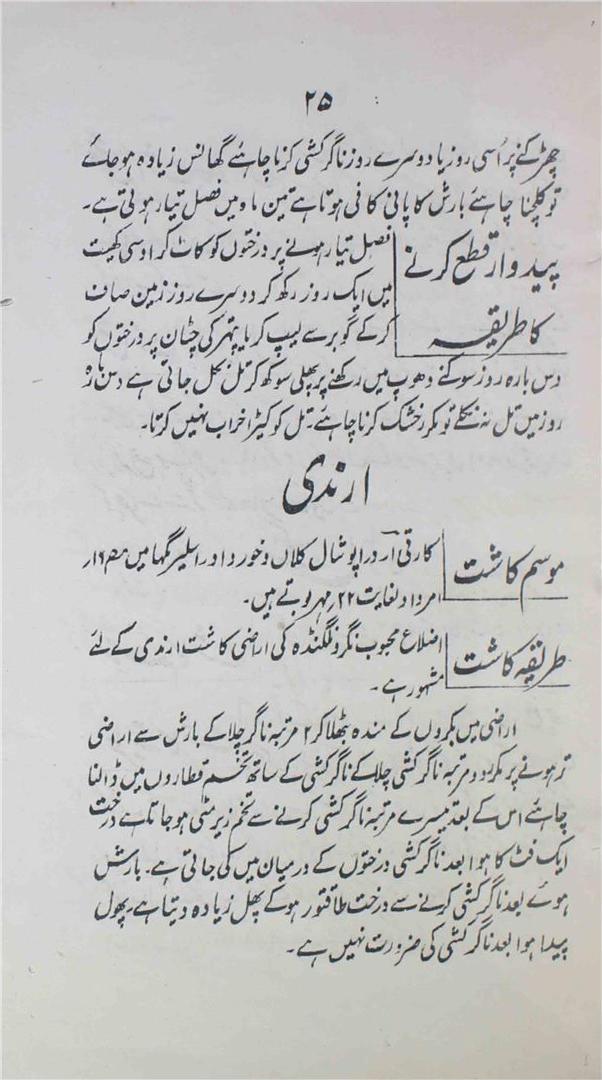 ۲۵
چھڑکنے پر اُسی روز یا دوسرے روز ناگر کشی کرنا چاہئے گھانس زیادہ ہو جائے
تو کلپنا چاہئے بارش کا پانی کافی ہوتا ہے تین ماہ میں فصل تیار ہوتی ہے۔
پیدوار قطع کرنے
کا طریقہ
فصل تیار ہونے پر درختوں کو کاٹ کر اوسی کھیت
میں ایک روز رکھ کر دوسرے روز زمین صاف
کر کے گوبر سے لیپ کر یا پتھر کی چٹان پر درختوں کو
دس بارہ روز سوکنے دھوپ میں رکھنے پر پھلی سوکھ کر تل نکل جاتی ہے دس بارہ
روز میں تل نہ نکلے تو مکرر خشک کرنا چاہئے۔ تل کو کیڑا خراب نہیں کرتا۔
ارنڈی
موسم کاشت
کارتی آردرا پوشال کلاں و خورد اور اسلیر گہا میں ۱۶
امرداد لغایت ۲۲ مہر بوتے ہیں۔
طریقہ کاشت
اضلاع محبوب نگر و نلگنڈہ کی اراضی کاشت ارنڈی کے لئے
مشہور ہے۔
اراضی میں بکروں کے مندہ بٹھلا کر ۲ مرتبہ ناگر چلا کے بارش سے اراضی
تر ہونے پر مکرر دو مرتبہ ناگر کشی چلا کے ناگر کشی کے ساتھ تخم قطاروں میں ڈالنا
چاہئے اس کے بعد تیسرے مرتبہ ناگر کشی کرنے سے تخم زیر مٹی ہو جاتا ہے درخت
ایک فٹ کا ہوا بعد ناگر کشی درختوں کے درمیان میں کی جاتی ہے۔ بارش
ہوئے بعد ناگر کشی کرنے سے درخت طاقتور ہو کے پھل زیادہ دیتا ہے۔ پھول
پیدا ہوا بعد ناگر کشی کی ضرورت نہیں ہے۔